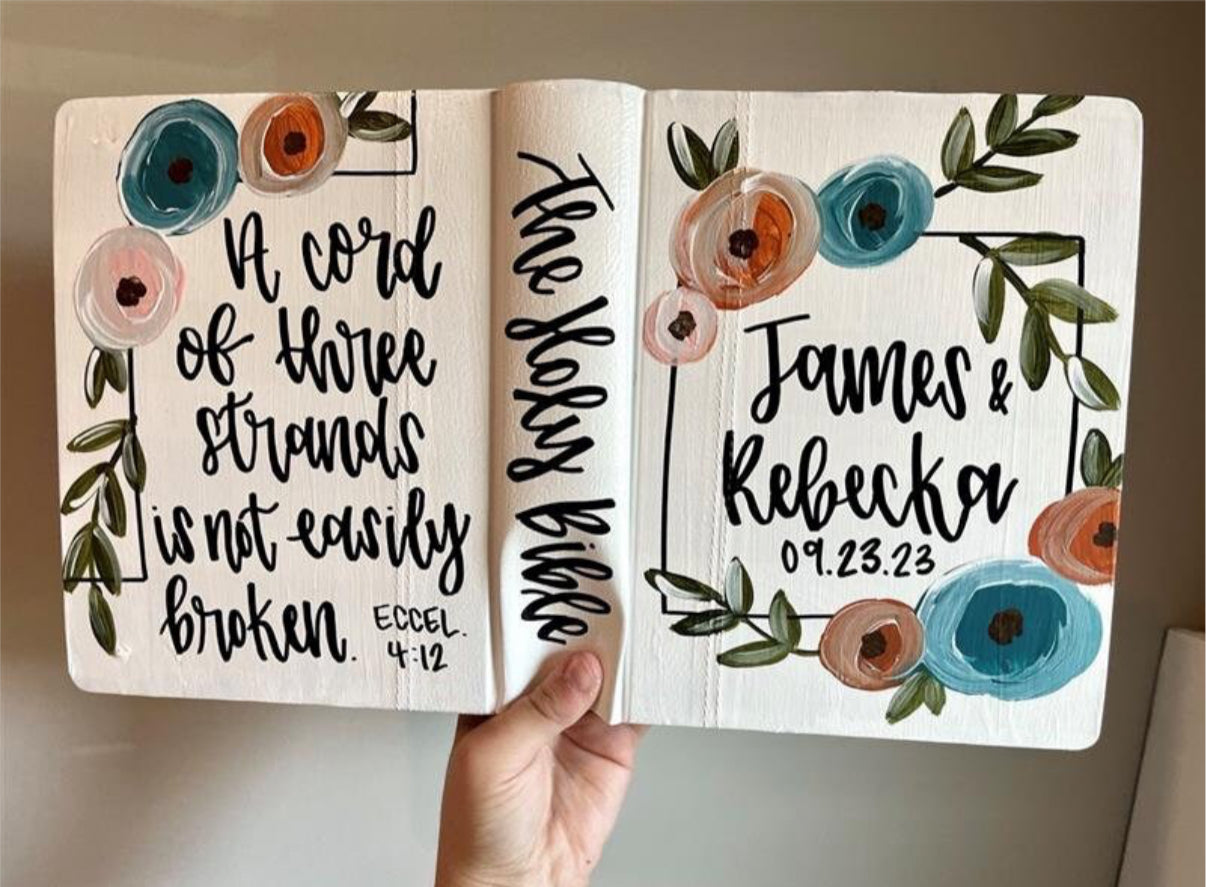 A cord
of three
strands
is not easily
broken.
ECCEL.
4:12
The Holy Bible
James &
Rebecka
09.23.23